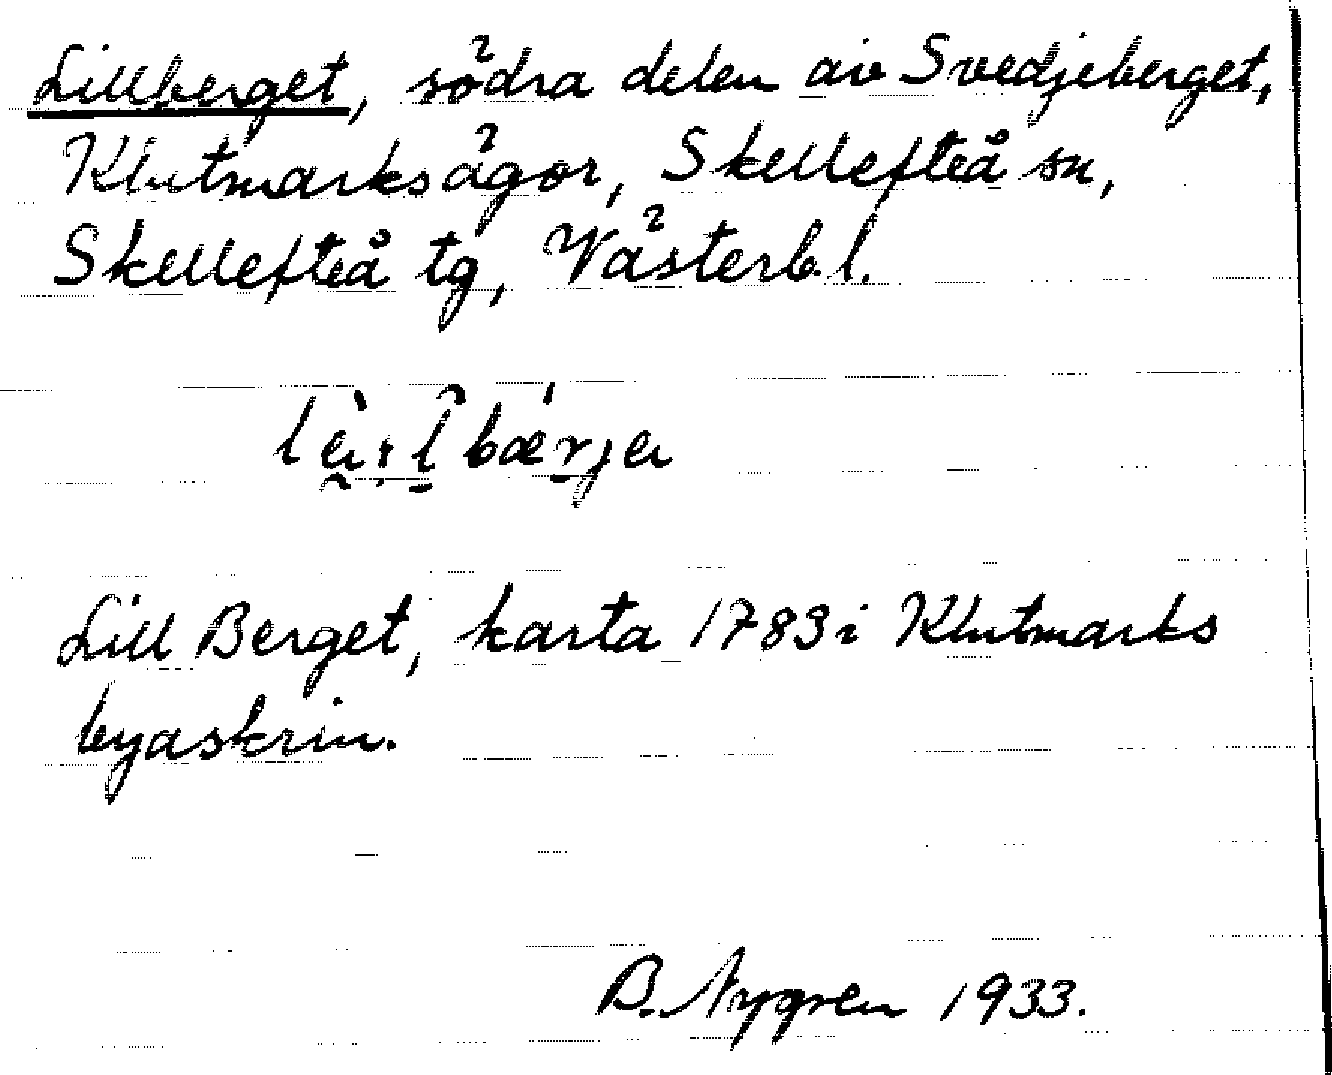 Lillberget, södra delen av Svedjeberget,
Klutmarksägor, Skellefteå sn,
Skellefteå tg, Västerb. l.
Lill Berget, karta 1783 i Klutmarks
byaskrin.
B. Nygren 1933.